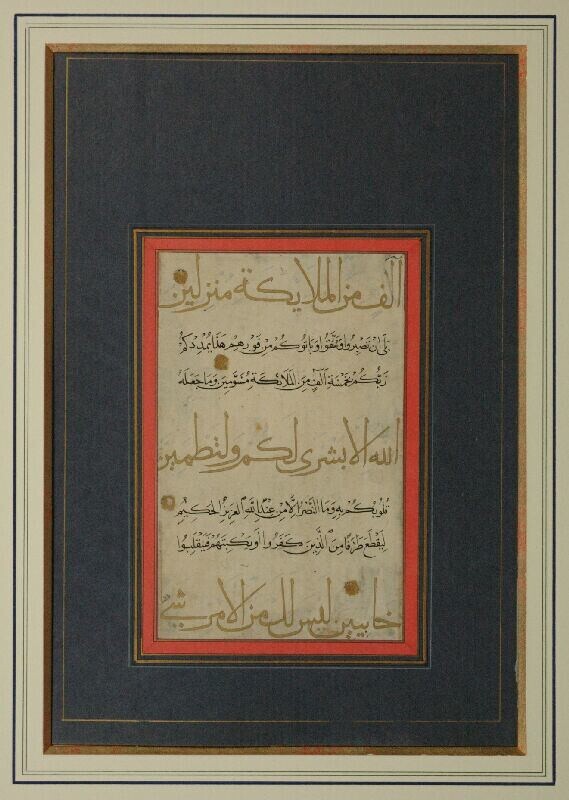 الف من الملايكة منزلين
بلى ان تصبروا وتتقوا وياتوكم من فورهم هذا يمددكم
ربكم بخمسة آلاف من الملائكة مسومين وما جعله
الله الا بشرى لكم ولتطمين
قلوبكم به وما النصر الا من عند الله العزيز الحكيم
ليقطع طرفا من الذين كفروا او يكبتهم فينقلبوا
خايبين ليس لك من الامر شي